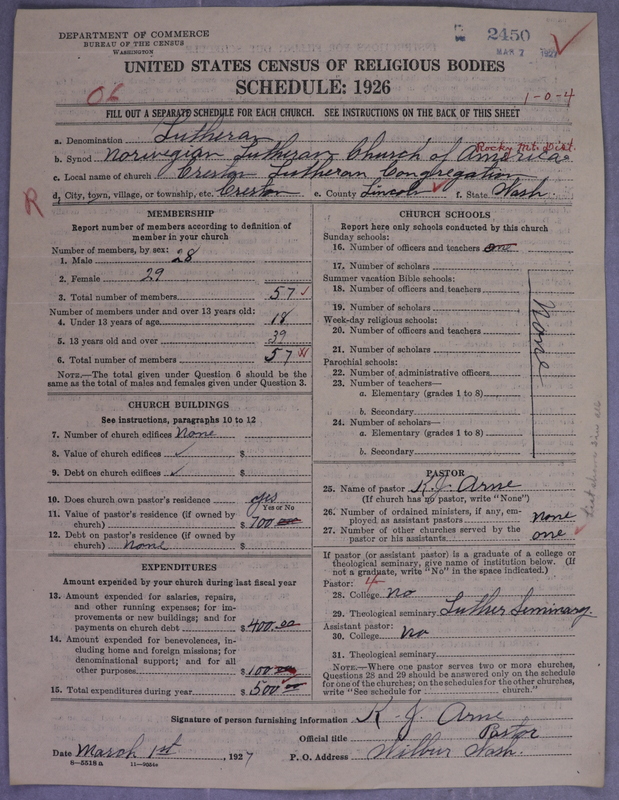 DEPARTMENT OF COMMERCE
BUREAU OF THE CENSUS
WASHINGTON
2450
MAR 7 1927
UNITED STATES CENSUS OF RELIGIOUS BODIES
SCHEDULE: 1926
06
1-0-4
FILL OUT A SEPARATE SCHEDULE FOR EACH CHURCH. SEE INSTRUCTIONS ON THE BACK OF THIS SHEET
a. Denomination Lutheran
Rocky Mt. Dist.
b. Synod Norwegian Lutheran Church of America
c. Local name of church Creston Lutheran Congregation
d. City, town, village, or township, etc. Creston e. County Lincoln f. State Wash.
R
MEMBERSHIP
Report number of members according to definition of
member in your church
Number of members, by sex:
1. Male 28
2. Female 29
3. Total number of members 57
Number of members under and over 13 years old:
4. Under 13 years of age 18
5. 13 years old and over 39
6. Total number of members 57
NOTE.—The total given under Question 6 should be the
same as the total of males and females given under Question 3.
CHURCH BUILDINGS
See instructions, paragraphs 10 to 12
7. Number of church edifices None
8. Value of church edifices $
9. Debt on church edifices $
10. Does church own pastor's residence yes
Yes or No
11. Value of pastor's residence (if owned by
church) $ 700
12. Debt on pastor's residence (if owned by
church) none $
EXPENDITURES
Amount expended by your church during last fiscal year
13. Amount expended for salaries, repairs,
and other running expenses; for im-
provements or new buildings; and for
payments on church debt $ 400.00
14. Amount expended for benevolences, in-
cluding home and foreign missions; for
denominational support; and for all
other purposes $ 100
15. Total expenditures during year $ 500
CHURCH SCHOOLS
Report here only schools conducted by this church
Sunday schools:
16. Number of officers and teachers one
17. Number of scholars
Summer vacation Bible schools:
18. Number of officers and teachers
19. Number of scholars
Week-day religious schools:
20. Number of officers and teachers
21. Number of scholars
Parochial schools:
22. Number of administrative officers
23. Number of teachers—
a. Elementary (grades 1 to 8)
b. Secondary
24. Number of scholars—
a. Elementary (grades 1 to 8)
b. Secondary
None
PASTOR
25. Name of pastor K. J. Arne
(If church has no pastor, write "None")
26. Number of ordained ministers, if any, em-
ployed as assistant pastors none
27. Number of other churches served by the
pastor or his assistants one
If pastor (or assistant pastor) is a graduate of a college or
theological seminary, give name of institution below. (If
not a graduate, write "No" in the space indicated.)
Pastor:
28. College no
29. Theological seminary Luther Seminary.
Assistant pastor:
30. College No
31. Theological seminary
NOTE.—Where one pastor serves two or more churches,
Questions 28 and 29 should be answered only on the schedule
for one of the churches; on the schedules for the other churches,
write "See schedule for church."
Signature of person furnishing information K. J. Arne
Official title Pastor
Date March 1st, 1927 P. O. Address Wilbur Wash.
8—5518 a 11—9054a